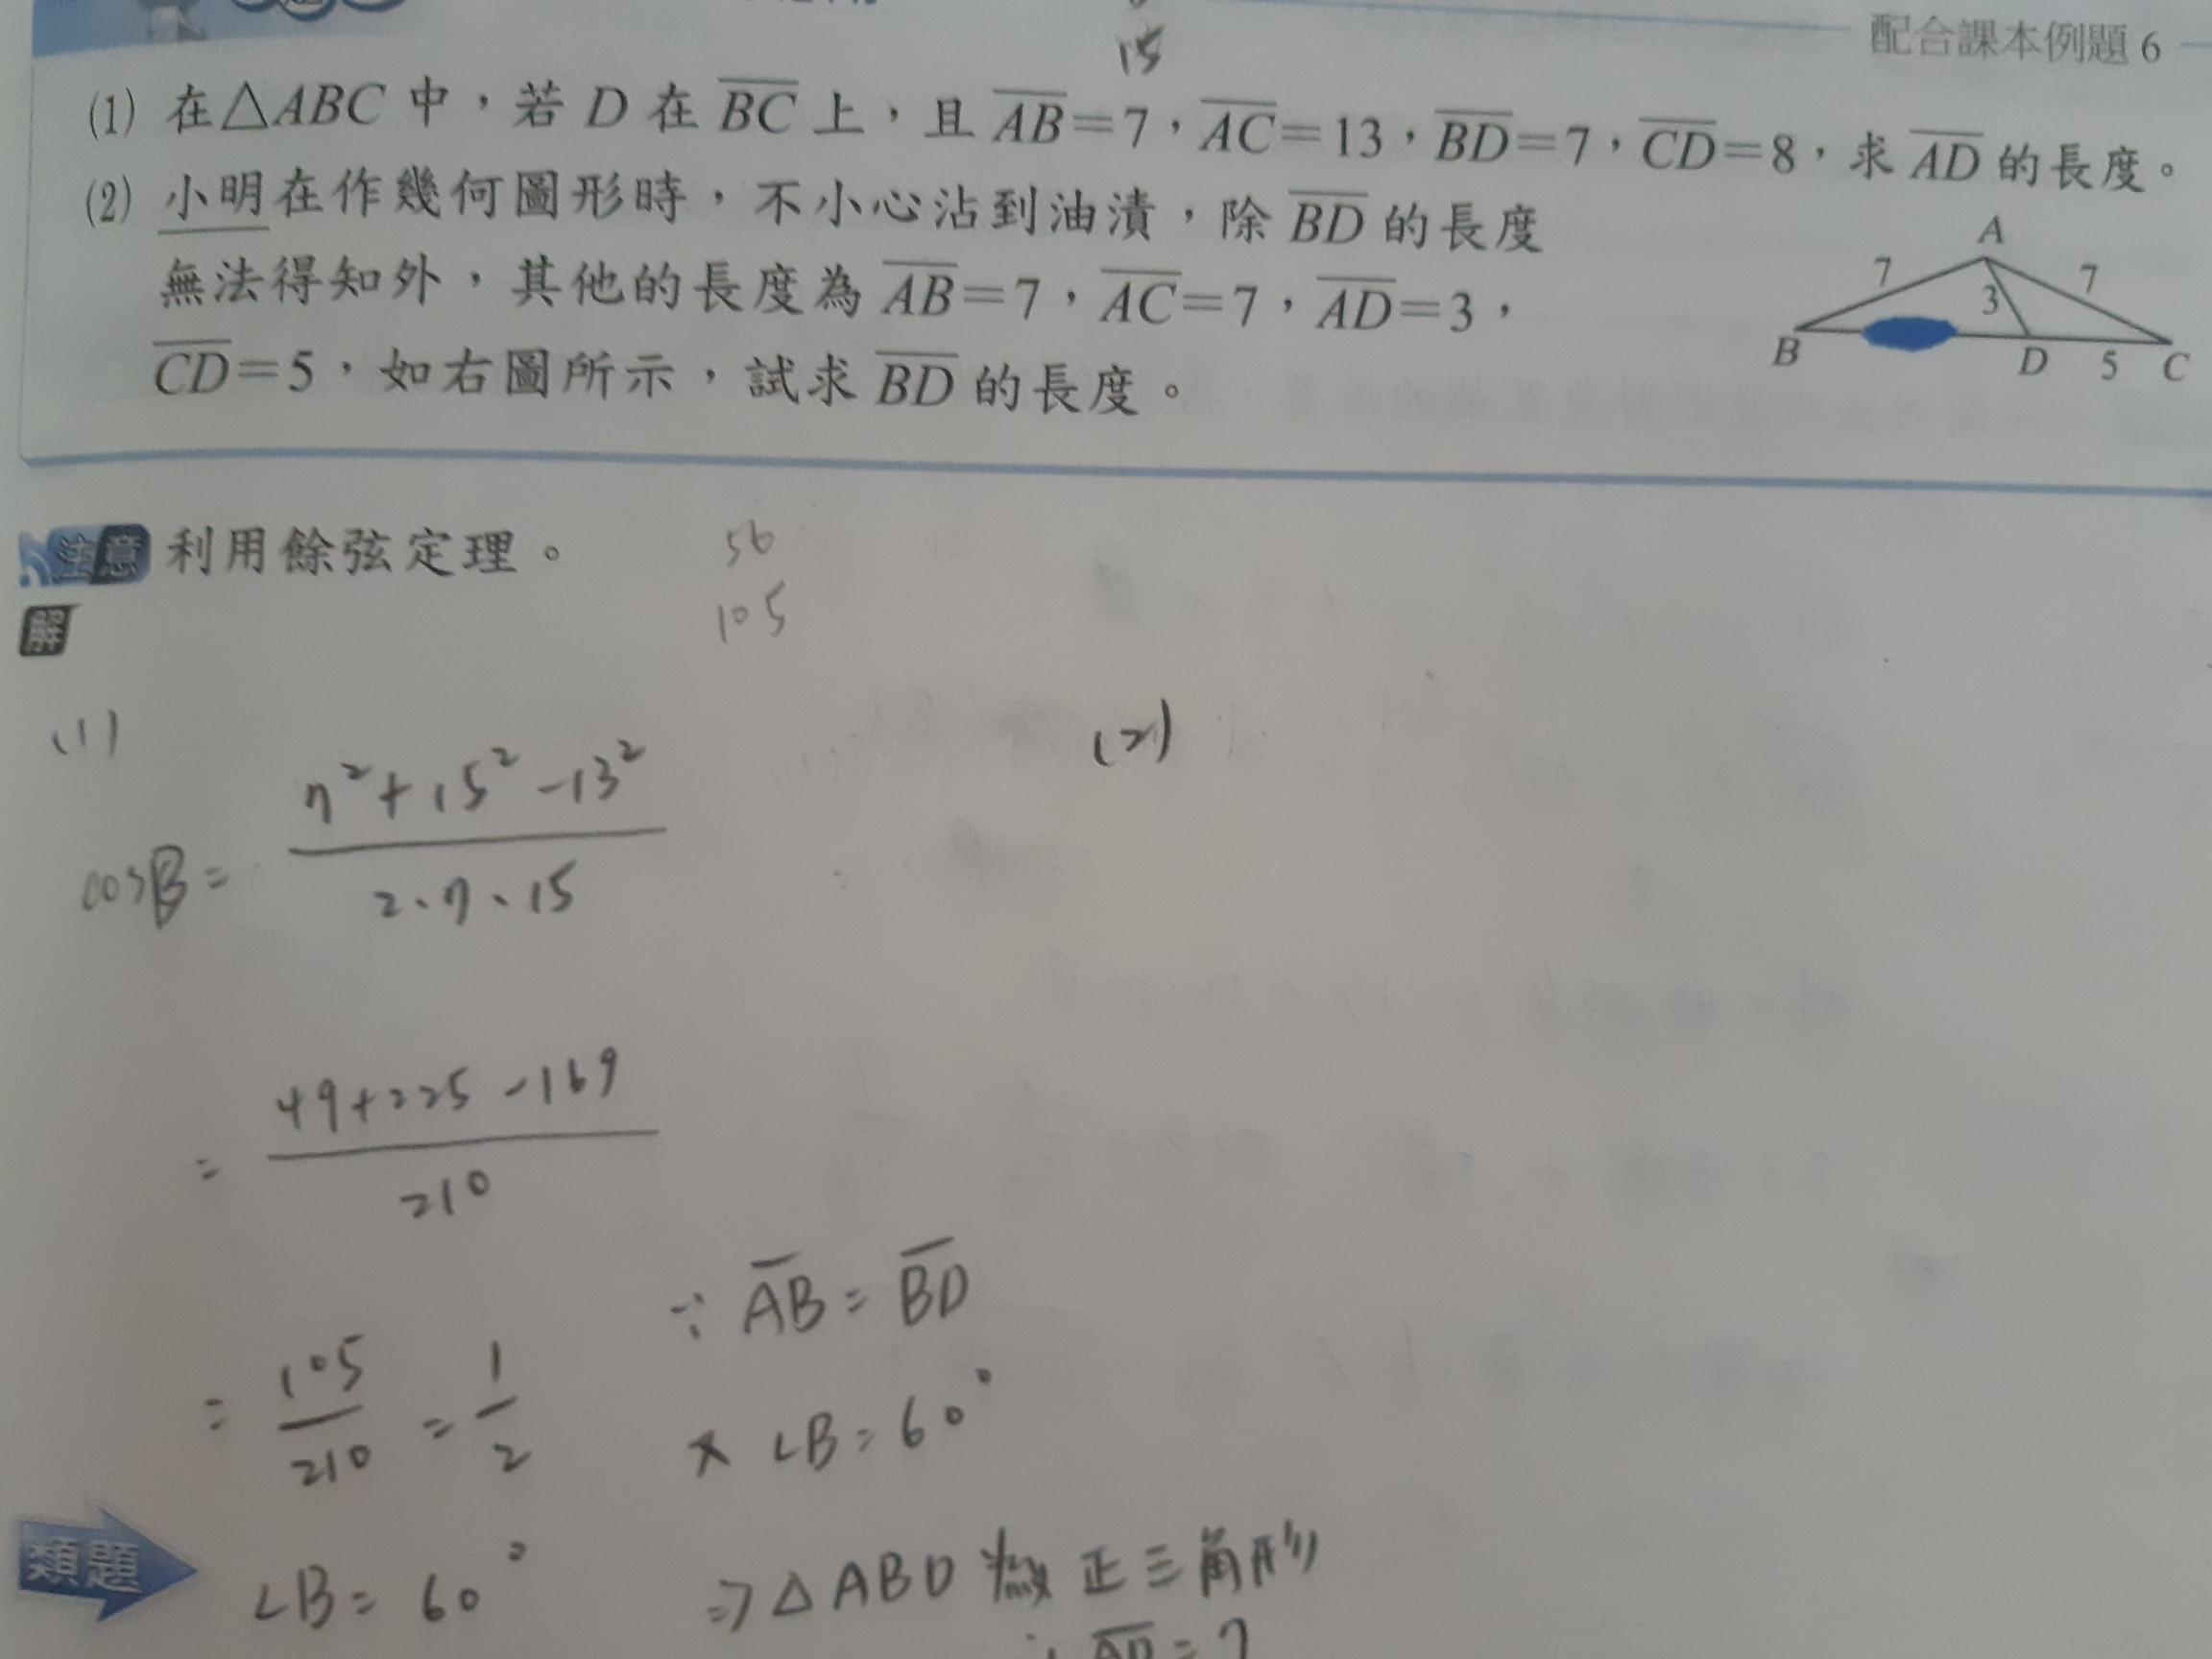 15
配合課本例題 6
(1) 在△ABC 中,若 D 在 BC 上,且 AB=7,AC=13,BD=7,CD=8,求 AD 的長度。
(2) 小明在作幾何圖形時,不小心沾到油漬,除 BD 的長度
無法得知外,其他的長度為 AB=7,AC=7,AD=3,
CD=5,如右圖所示,試求 BD 的長度。
A
7
3
7
B
D
5
C
注意 利用餘弦定理。
56
105
解
(1)
cosB = 7²+15²-13² / 2·7·15
= 49+225-169 / 210
= 105/210 = 1/2
∠B = 60°
∵ AB = BD
又 ∠B = 60°
⇒ △ABD 為正三角形
∴ AD = 7
(2)
類題